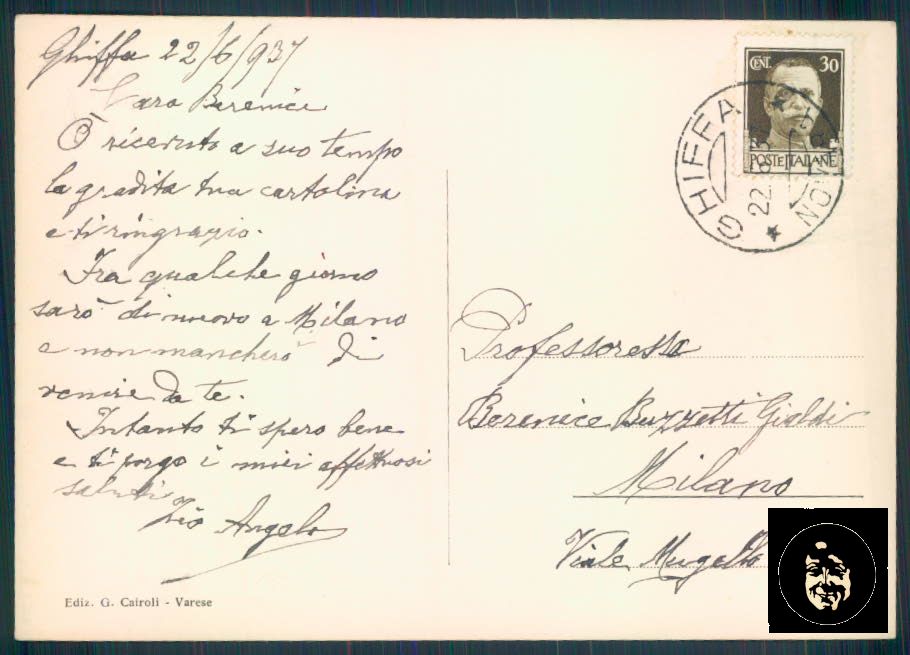 Ghiffa 22/6/937
Cara Berenice
Ò ricevuto a suo tempo
la gradita tua cartolina
e ti ringrazio.
Fra qualche giorno
sarò di nuovo a Milano
e non mancherò di
venire da te.
Intanto ti spero bene
e ti porgo i miei affettuosi
saluti
Zio Angelo
Ediz. G. Cairoli - Varese
CENT. 30
POSTE ITALIANE
GHIFFA
22.6
NOVARA
Professoressa
Berenice Buzzetti Gialdi
Milano
Viale Mugello